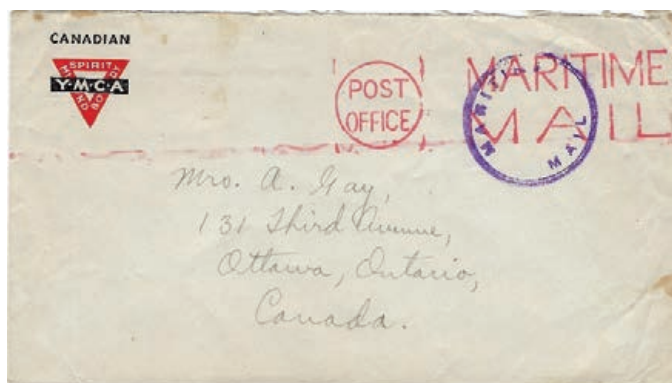 CANADIAN
SPIRIT
MIND
BODY
Y·M·C·A
POST
OFFICE
MARITIME
MAIL
MARITIME
MAIL
Mrs. A. Gay,
131 Third Avenue,
Ottawa, Ontario,
Canada.